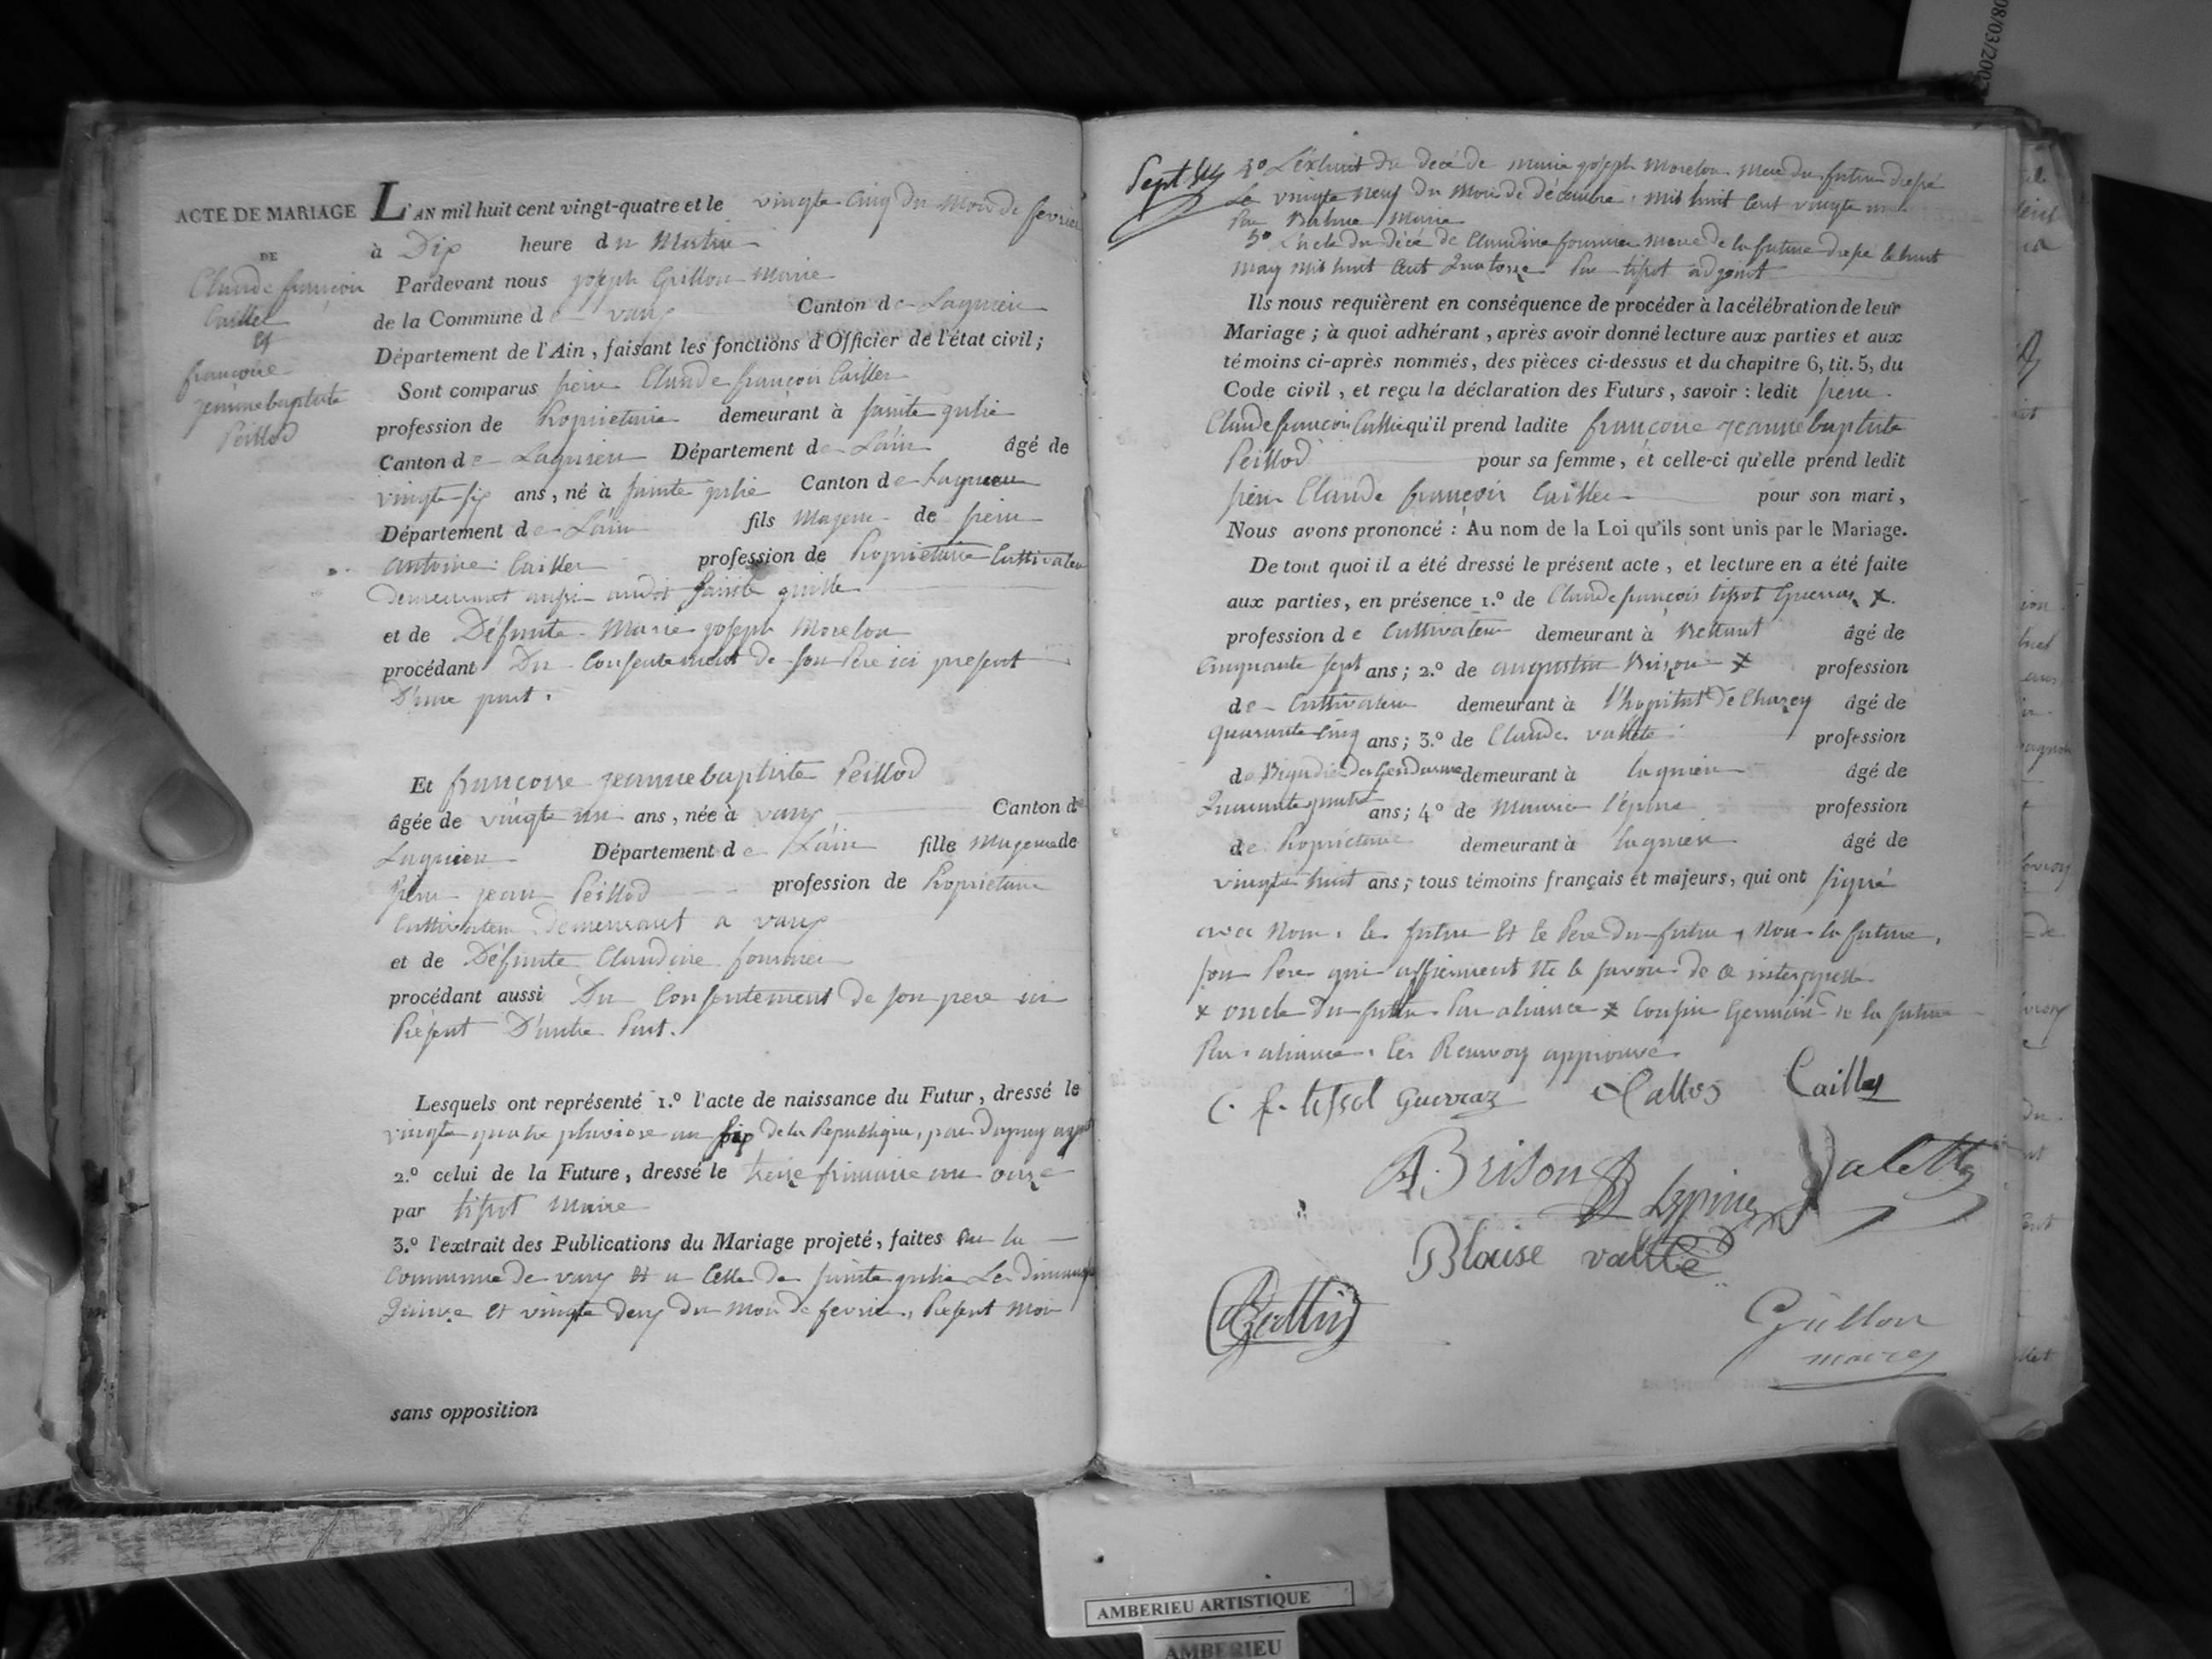 ACTE DE MARIAGE
DE
Claude françois
Cailler
Et
françoise
jeanne baptiste
Peillod
L'AN mil huit cent vingt-quatre et le vingte cinq du Mois de fevrier
à Dix heure du Matin
Pardevant nous joseph Grillon Maire
de la Commune de vaux Canton de Lagnieu
Département de l'Ain, faisant les fonctions d'Officier de l'état civil;
Sont comparus sieur Claude françois Cailler
profession de Proprietaire demeurant à sainte julie
Canton de Lagnieu Département de L'ain âgé de
vingte six ans, né à sainte julie Canton de Lagnieu
Département de L'ain fils Majeur de sieur
antoine Cailler profession de Proprietaire Cultivateur
demeurant aussi audit sainte julie
et de Défunte Marie joseph Morelon
procédant Du Consentement de son Pere ici present
D'une part.
Et françoise jeanne baptiste Peillod
âgée de vingte un ans, née à vaux Canton de
Lagnieu Département de L'ain fille Majeure de
sieur jean Peillod profession de Proprietaire
Cultivateur demeurant a vaux
et de Défunte Claudine fournier
procédant aussi Du Consentement de son pere ici
Présent D'autre Part.
Lesquels ont représenté 1.º l'acte de naissance du Futur, dressé le
vingte quatre pluviose an six de la Republique, par Dupuy agent
2.º celui de la Future, dressé le treize frimaire an onze
par tissot Maire
3.º l'extrait des Publications du Mariage projeté, faites Par la
Commune de vaux Et a Celle de sainte julie Les dimanche
Quinze Et vingte deux du Mois de fevrier, Présent Mois
sans opposition
Sept
4º L'extrait du decé de Marie joseph Morelon Mere du futur dressé
Le vingte neuf du Mois de décembre mil huit Cent vingte un
Par Maire
5º L'acte du décé de Claudine fournier Mere de la future dressé le huit
May Mil huit Cent Quatorze Par tissot adjoint
Ils nous requièrent en conséquence de procéder à la célébration de leur
Mariage; à quoi adhérant, après avoir donné lecture aux parties et aux
témoins ci-après nommés, des pièces ci-dessus et du chapitre 6, tit. 5, du
Code civil, et reçu la déclaration des Futurs, savoir: ledit sieur
Claude françois Cailler qu'il prend ladite françoise jeanne baptiste
Peillod pour sa femme, et celle-ci qu'elle prend ledit
sieur Claude françois Cailler pour son mari,
Nous avons prononcé: Au nom de la Loi qu'ils sont unis par le Mariage.
De tout quoi il a été dressé le présent acte, et lecture en a été faite
aux parties, en présence 1.º de Claude françois tissot Guerraz x
profession de Cultivateur demeurant à Bettant âgé de
Cinquante sept ans; 2.º de augustin Brison x profession
de Cultivateur demeurant à l'hopital De Chazey âgé de
quarante Cinq ans; 3.º de Claude vallete profession
de Brigadier de Gendarme demeurant à lagnieu âgé de
Quarante quatre ans; 4º de Maurice l'épine profession
de Proprietaire demeurant à lagnieu âgé de
vingte huit ans; tous témoins français et majeurs, qui ont signé
avec Nous, le futur Et le Pere du futur, Non la future,
son Pere qui affirment Ne le savoir de Ce interpellé
x oncle du futur Par aliance x Cousin Germain de la future
Par aliance, les Renvoy approuvé
C. f. tissot Guerraz Cailler
A Brison Lepine Valette
Blaise vallté
Grillon
maire
08/03/200
AMBERIEU ARTISTIQUE
AMBERIEU